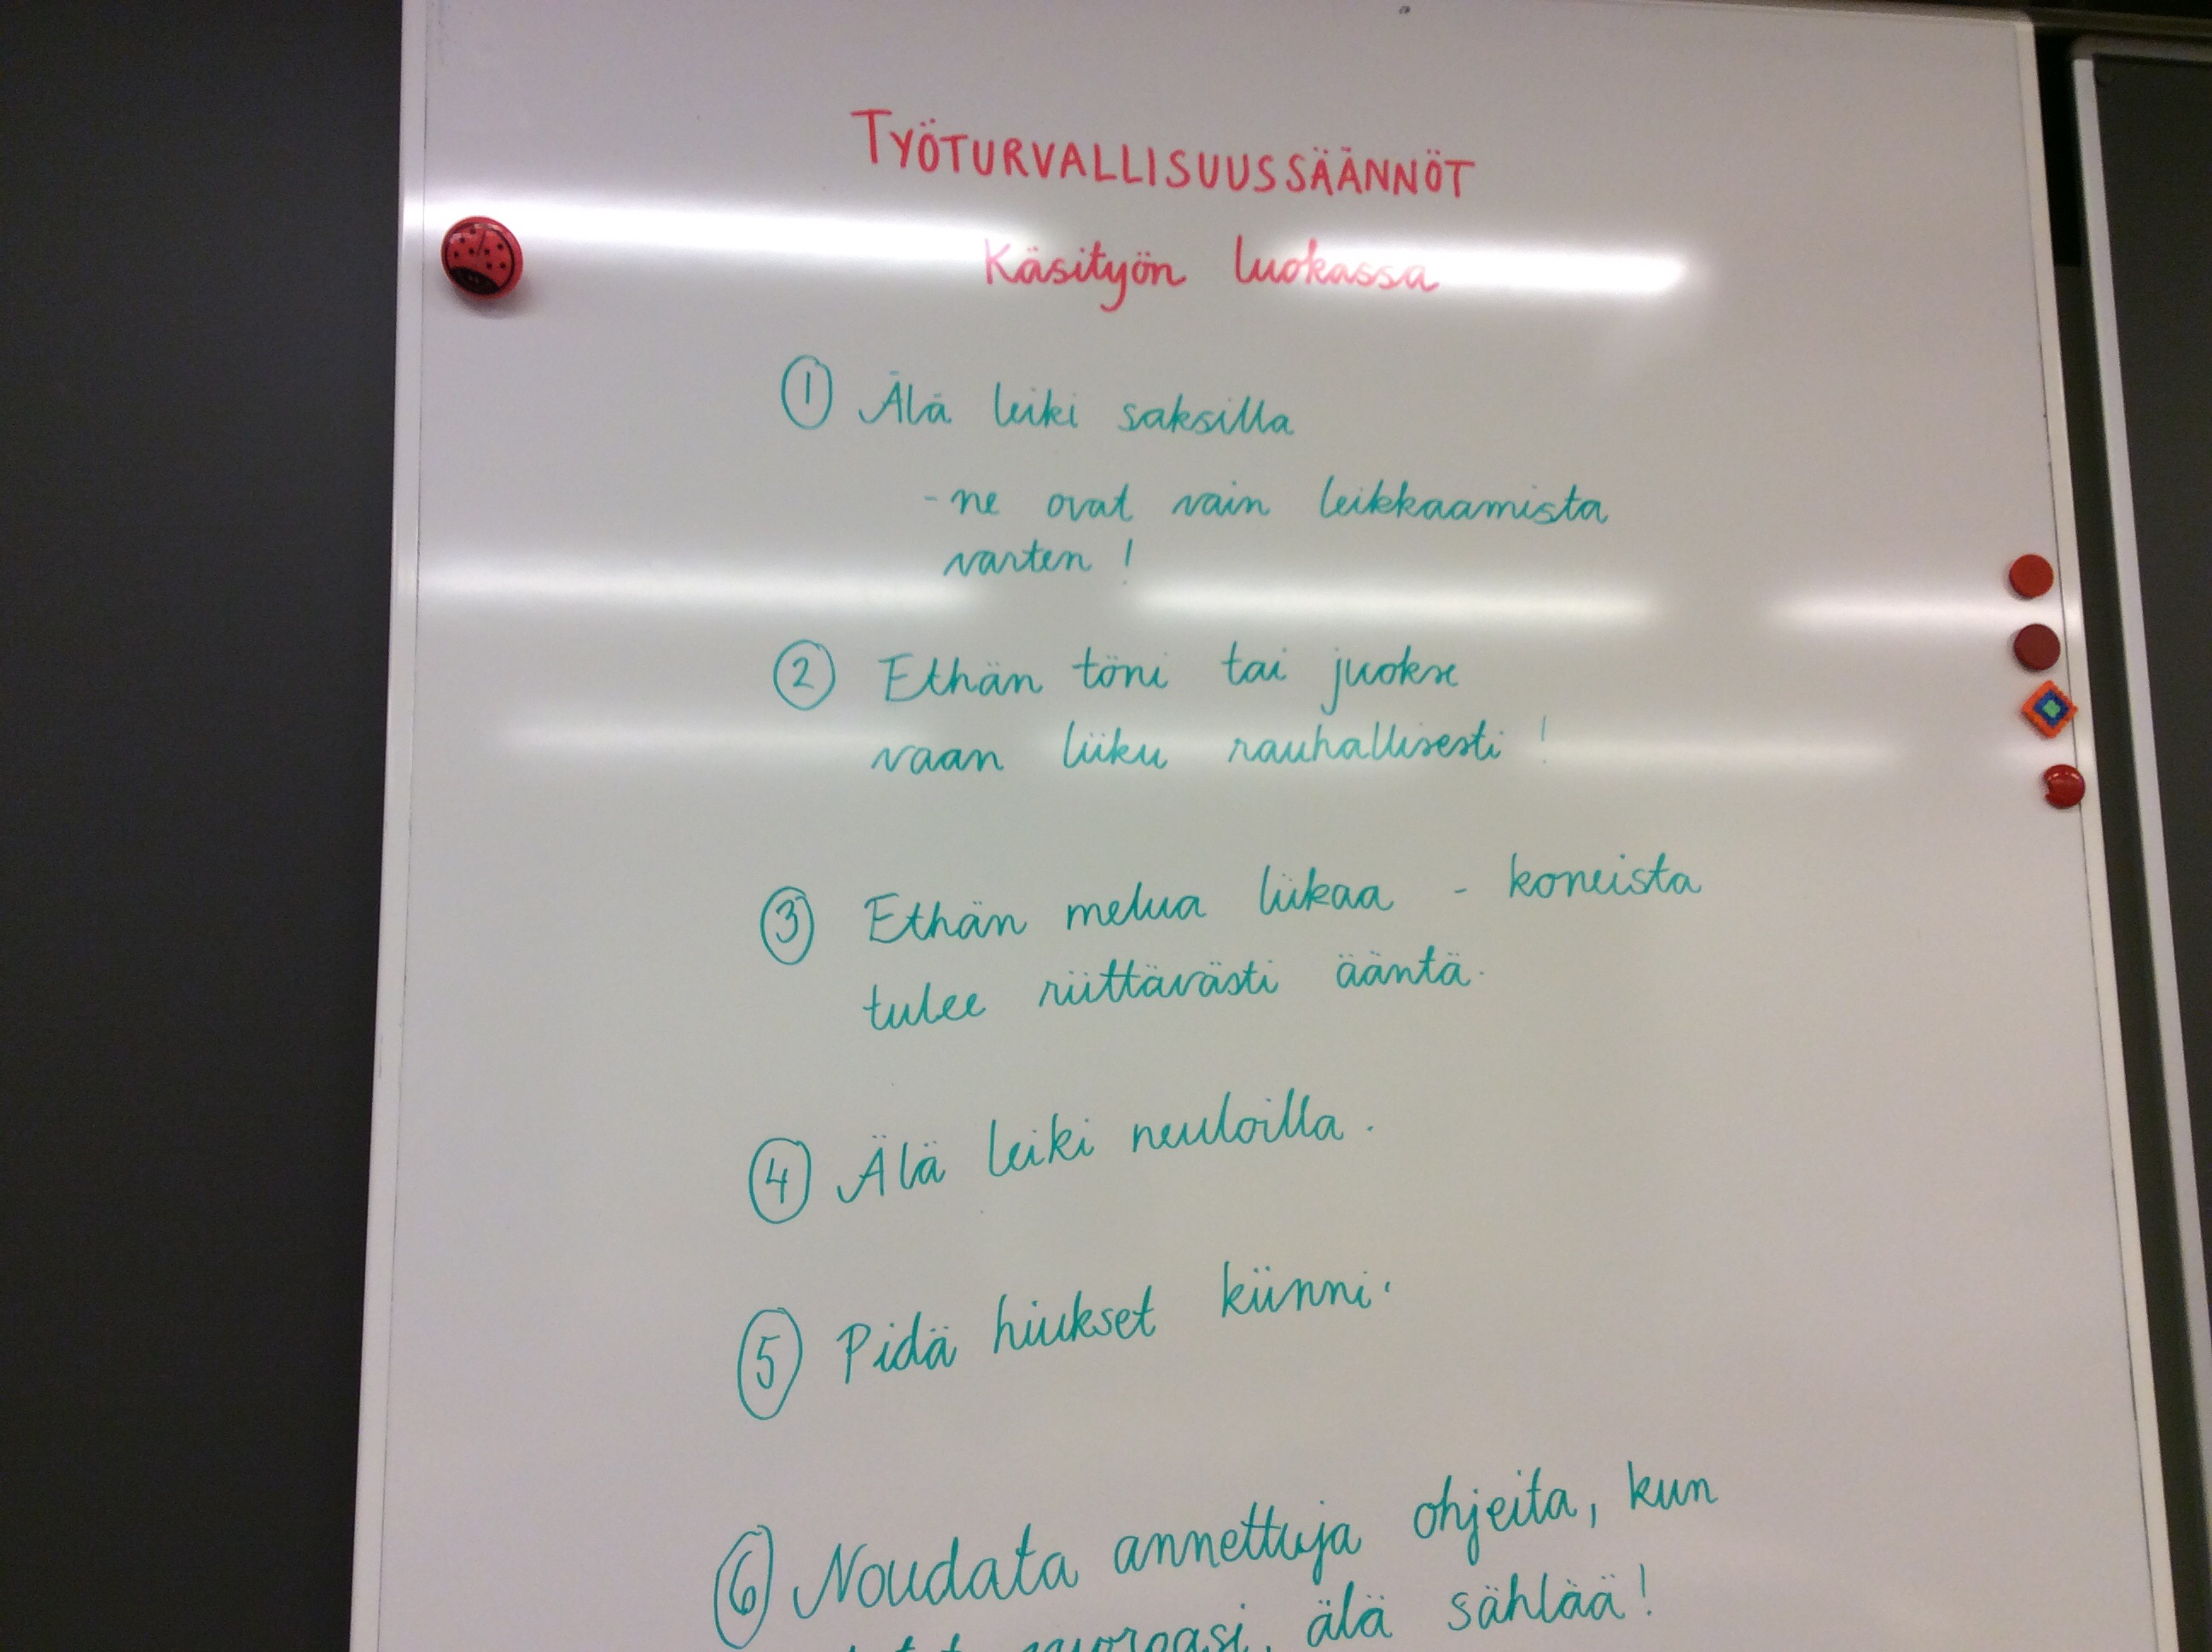 TYÖTURVALLISUUSSÄÄNNÖT
Käsityön luokassa
1 Älä leiki saksilla
- ne ovat vain leikkaamista
varten !
2 Ethän töni tai juokse
vaan liiku rauhallisesti !
3 Ethän melua liikaa - koneista
tulee riittävästi ääntä.
4 Älä leiki neuloilla.
5 Pidä hiukset kiinni.
6 Noudata annettuja ohjeita, kun
älä sählää!